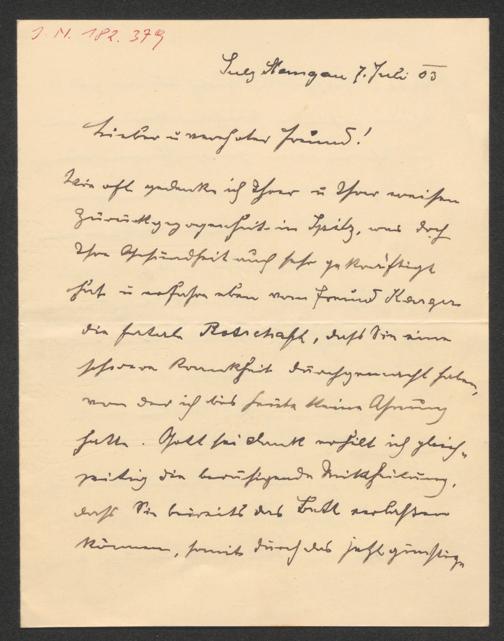 J. N. 182.379
Sulz Stangau 7. Juli 03
Lieber u verehrter Freund!
Wie oft gedenke ich Ihrer u Ihrer weisen
Zurückgezogenheit in Spitz, was doch
Ihre Gesundheit auch sehr gekräftigt
hat u erfahre eben vom Freund Karger
die fatale Botschaft, daß Sie eine
schwere Krankheit durchgemacht haben,
von der ich bis heute keine Ahnung
hatte. Gott sei Dank erhielt ich gleich-
zeitig die beruhigende Mittheilung,
daß Sie bereits das Bett verlassen
können, somit durch das jetzt günstige